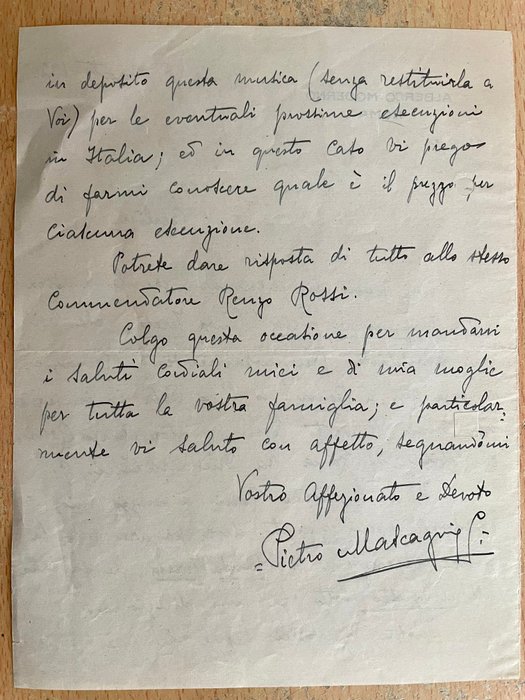 in deposito questa musica (senza restituirla a
Voi) per le eventuali prossime esecuzioni
in Italia; ed in questo caso vi prego
di farmi conoscere quale è il prezzo per
ciascuna esecuzione.
Potrete dare risposta di tutto allo stesso
Commendatore Renzo Rossi.
Colgo questa occasione per mandarvi
i saluti cordiali miei e di mia moglie
per tutta la vostra famiglia; e particolar-
mente vi saluto con affetto, segnandomi
Vostro Affezionato e Devoto
= Pietro Mascagni